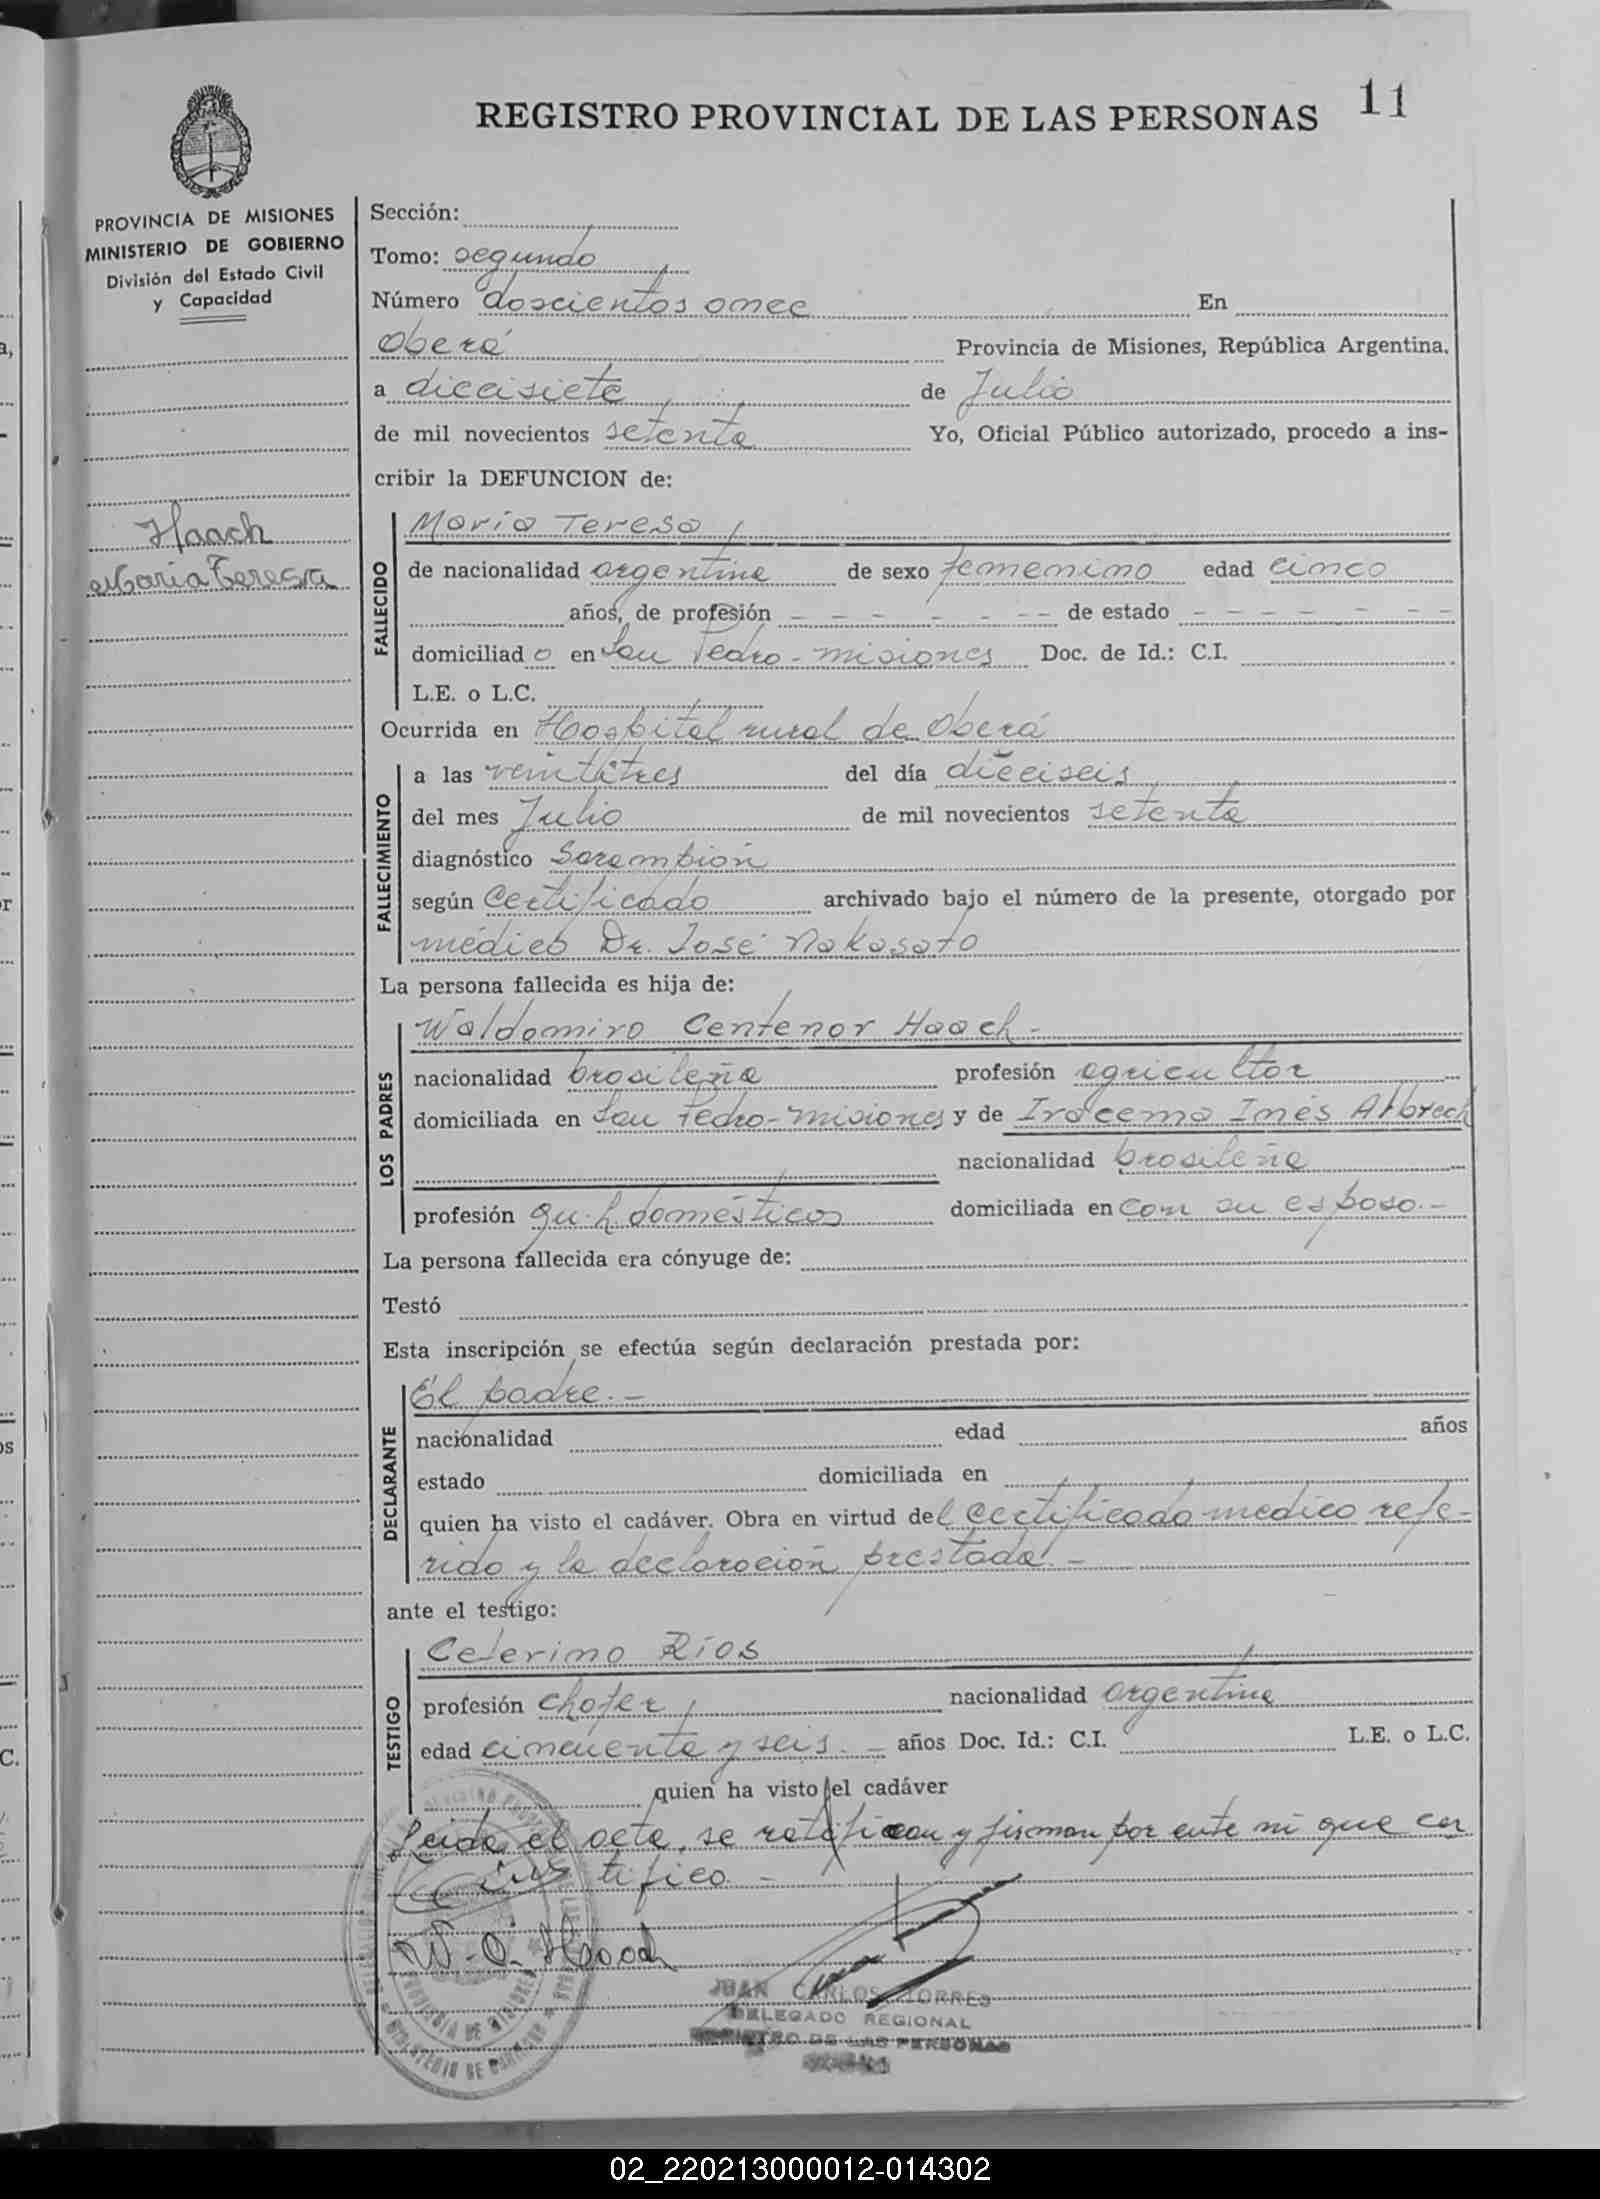 REGISTRO PROVINCIAL DE LAS PERSONAS 11
PROVINCIA DE MISIONES
MINISTERIO DE GOBIERNO
División del Estado Civil
y Capacidad
Haach
Maria Teresa
Sección:
Tomo: segundo
Número doscientos once En
Oberá Provincia de Misiones, República Argentina,
a diecisiete de Julio
de mil novecientos setenta Yo, Oficial Público autorizado, procedo a ins-
cribir la DEFUNCION de:
FALLECIDO
María Teresa
de nacionalidad argentina de sexo femenino edad cinco
años, de profesión - - - - - - - de estado - - - - - - -
domiciliad o en San Pedro - misiones Doc. de Id.: C.I.
L.E. o L.C.
Ocurrida en Hospital rural de Oberá
FALLECIMIENTO
a las veintitres del día dieciseis
del mes Julio de mil novecientos setenta
diagnóstico Sarampión
según Certificado archivado bajo el número de la presente, otorgado por
médico Dr. José Nakasato
La persona fallecida es hija de:
LOS PADRES
Waldomiro Centenor Haach -
nacionalidad brasileña profesión agricultor
domiciliada en San Pedro - misiones y de Iracema Inés Albrech
nacionalidad brasileña
profesión qu. h. domésticos domiciliada en con su esposo. -
La persona fallecida era cónyuge de:
Testó
Esta inscripción se efectúa según declaración prestada por:
DECLARANTE
El padre. -
nacionalidad edad años
estado domiciliada en
quien ha visto el cadáver. Obra en virtud del certificado medico refe-
rido y la declaración prestada. -
ante el testigo:
TESTIGO
Celerino Ríos
profesión chofer nacionalidad argentina
edad cincuenta y seis. - años Doc. Id.: C.I. L.E. o L.C.
quien ha visto el cadáver
Leida el acta, se ratifican y firman por ante mi que cer
tifico. -
W. C. Haach
JUAN CARLOS TORRES
DELEGADO REGIONAL
REGISTRO DE LAS PERSONAS
PROVINCIA DE MISIONES
MINISTERIO DE GOBIERNO
02_220213000012-014302